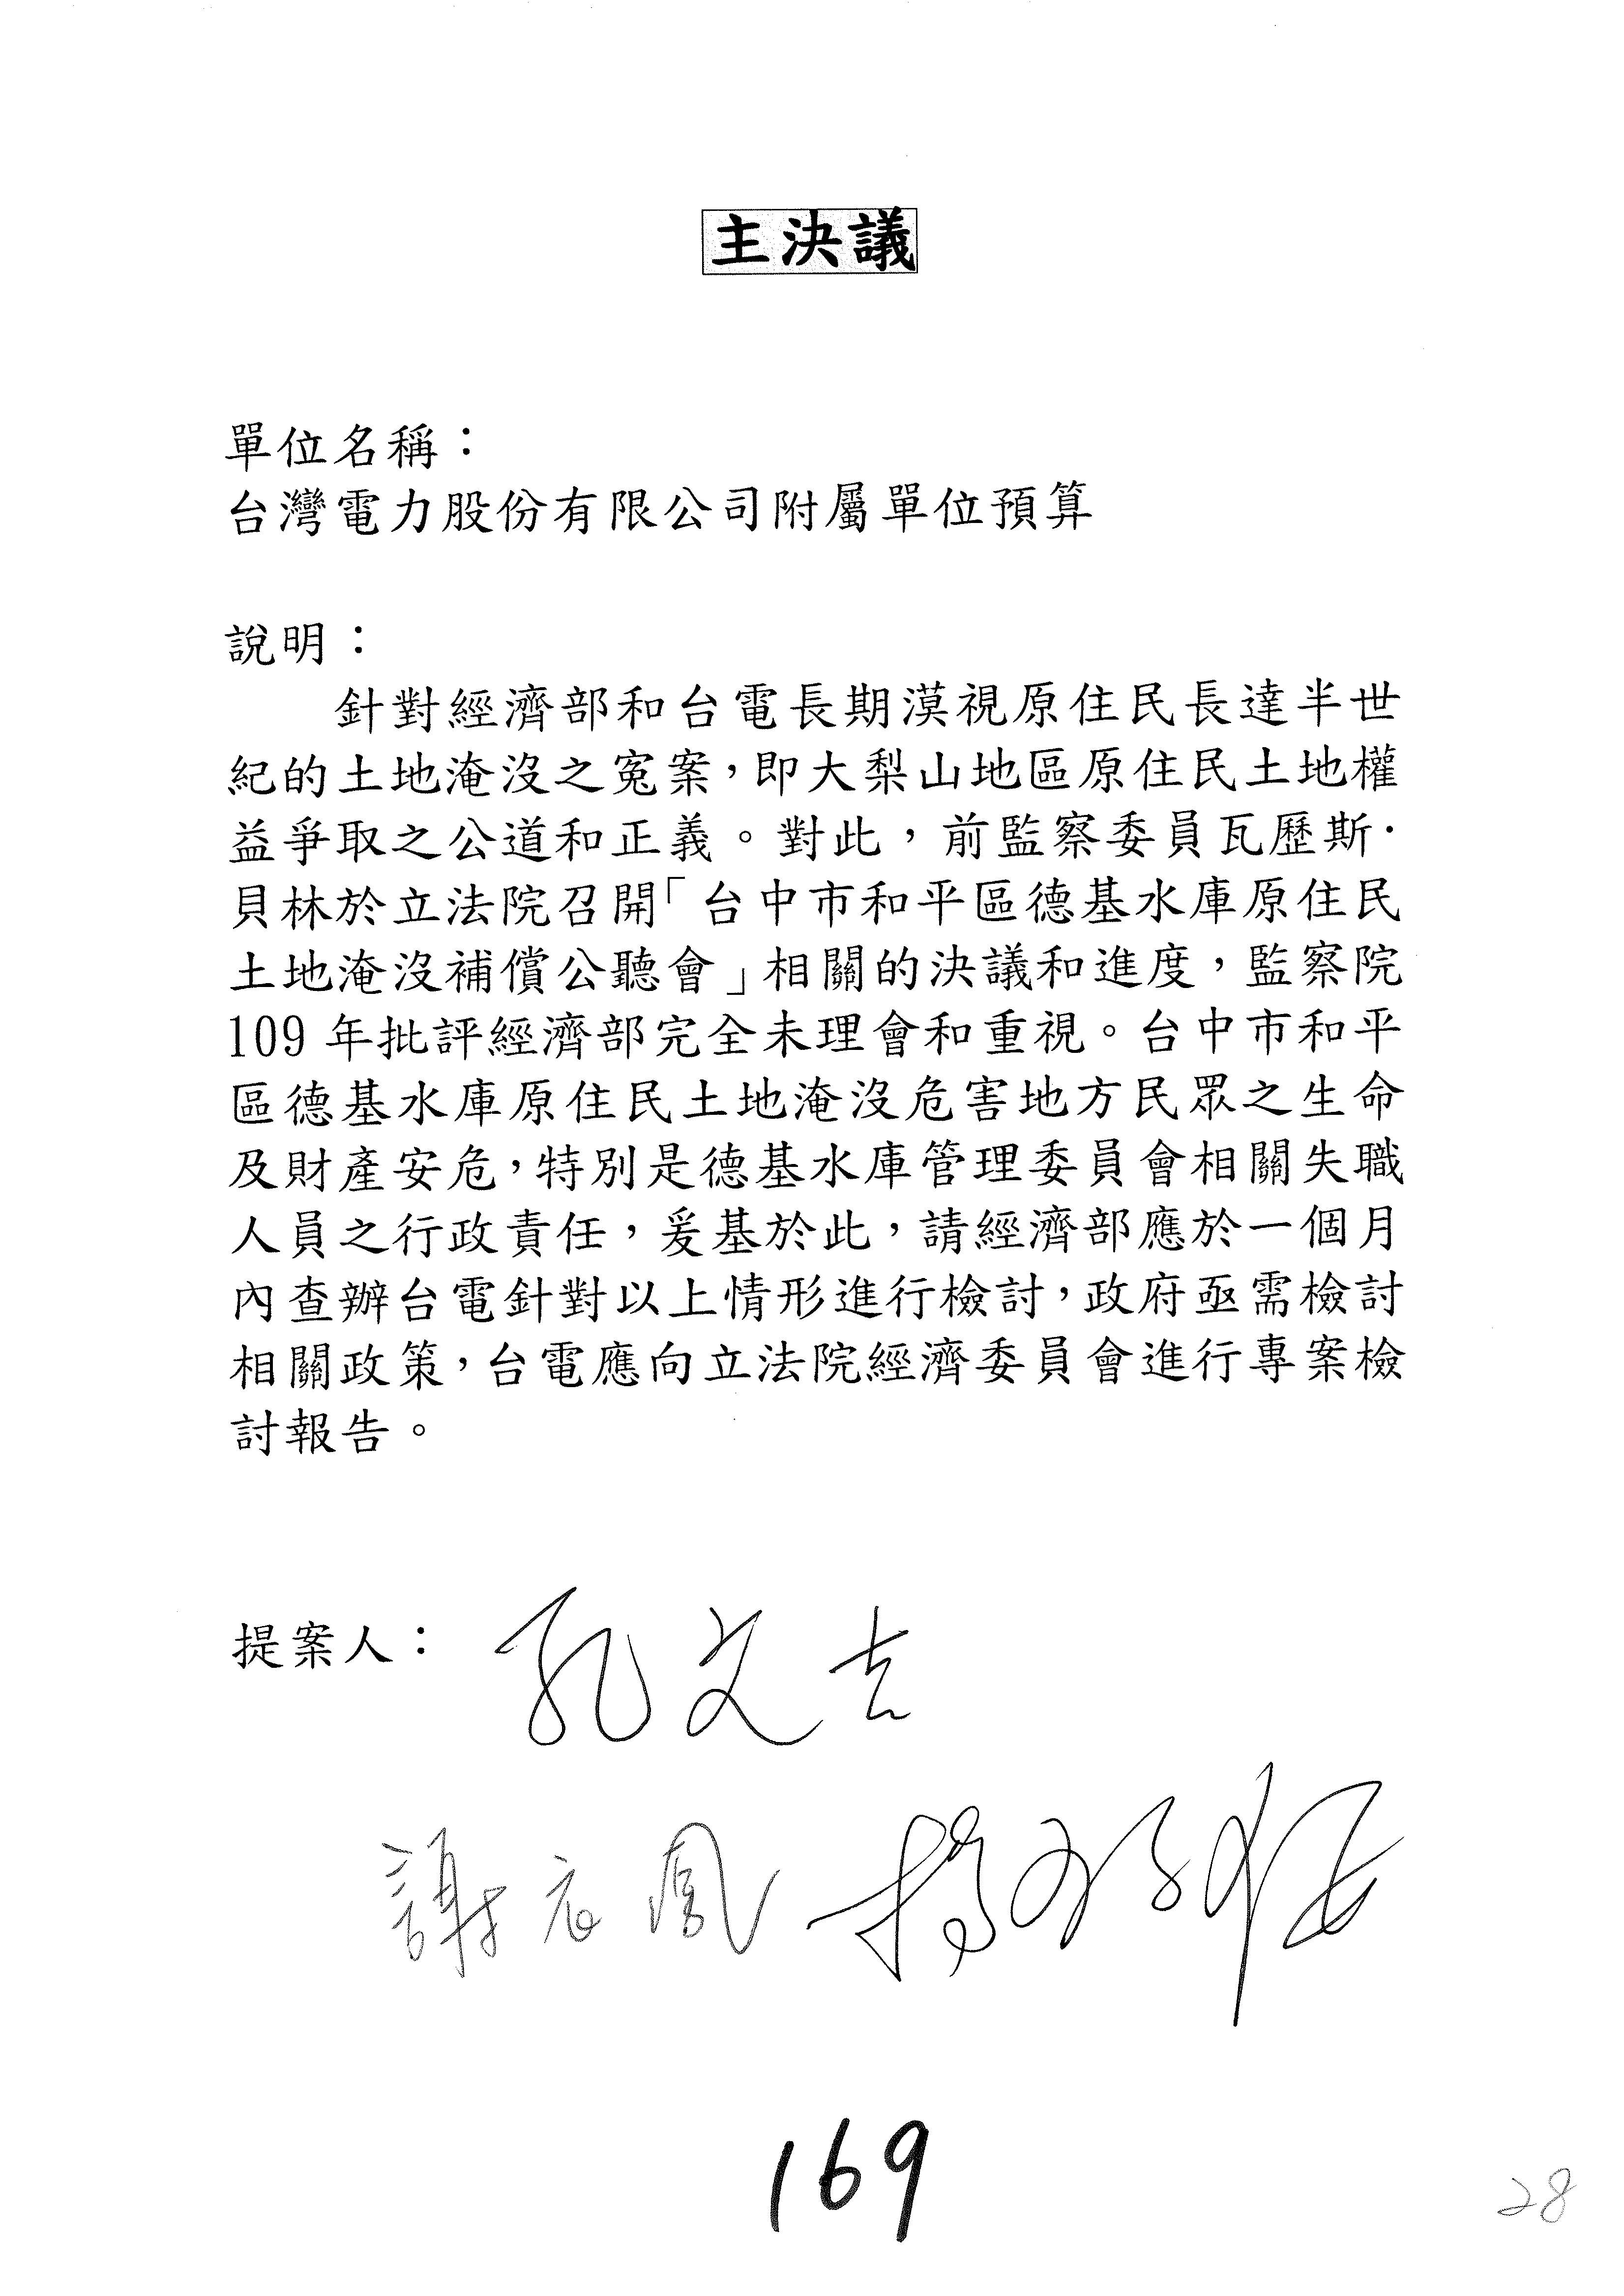 主決議
單位名稱：
台灣電力股份有限公司附屬單位預算
說明：
針對經濟部和台電長期漠視原住民長達半世
紀的土地淹沒之冤案，即大梨山地區原住民土地權
益爭取之公道和正義。對此，前監察委員瓦歷斯·
貝林於立法院召開「台中市和平區德基水庫原住民
土地淹沒補償公聽會」相關的決議和進度，監察院
109 年批評經濟部完全未理會和重視。台中市和平
區德基水庫原住民土地淹沒危害地方民眾之生命
及財產安危，特別是德基水庫管理委員會相關失職
人員之行政責任，爰基於此，請經濟部應於一個月
內查辦台電針對以上情形進行檢討，政府亟需檢討
相關政策，台電應向立法院經濟委員會進行專案檢
討報告。
提案人：孔文吉
謝衣鳳
169
28